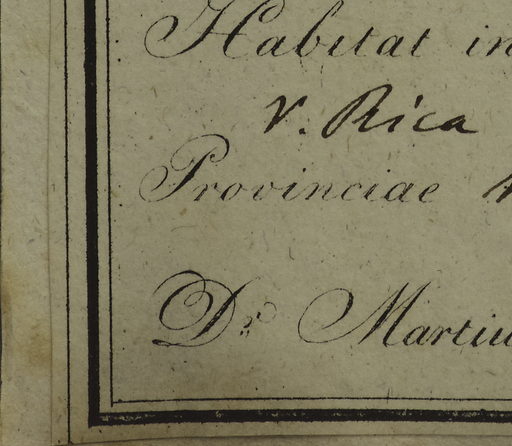 Habitat in
V. Rica
Provinciae
Dr. Martiu